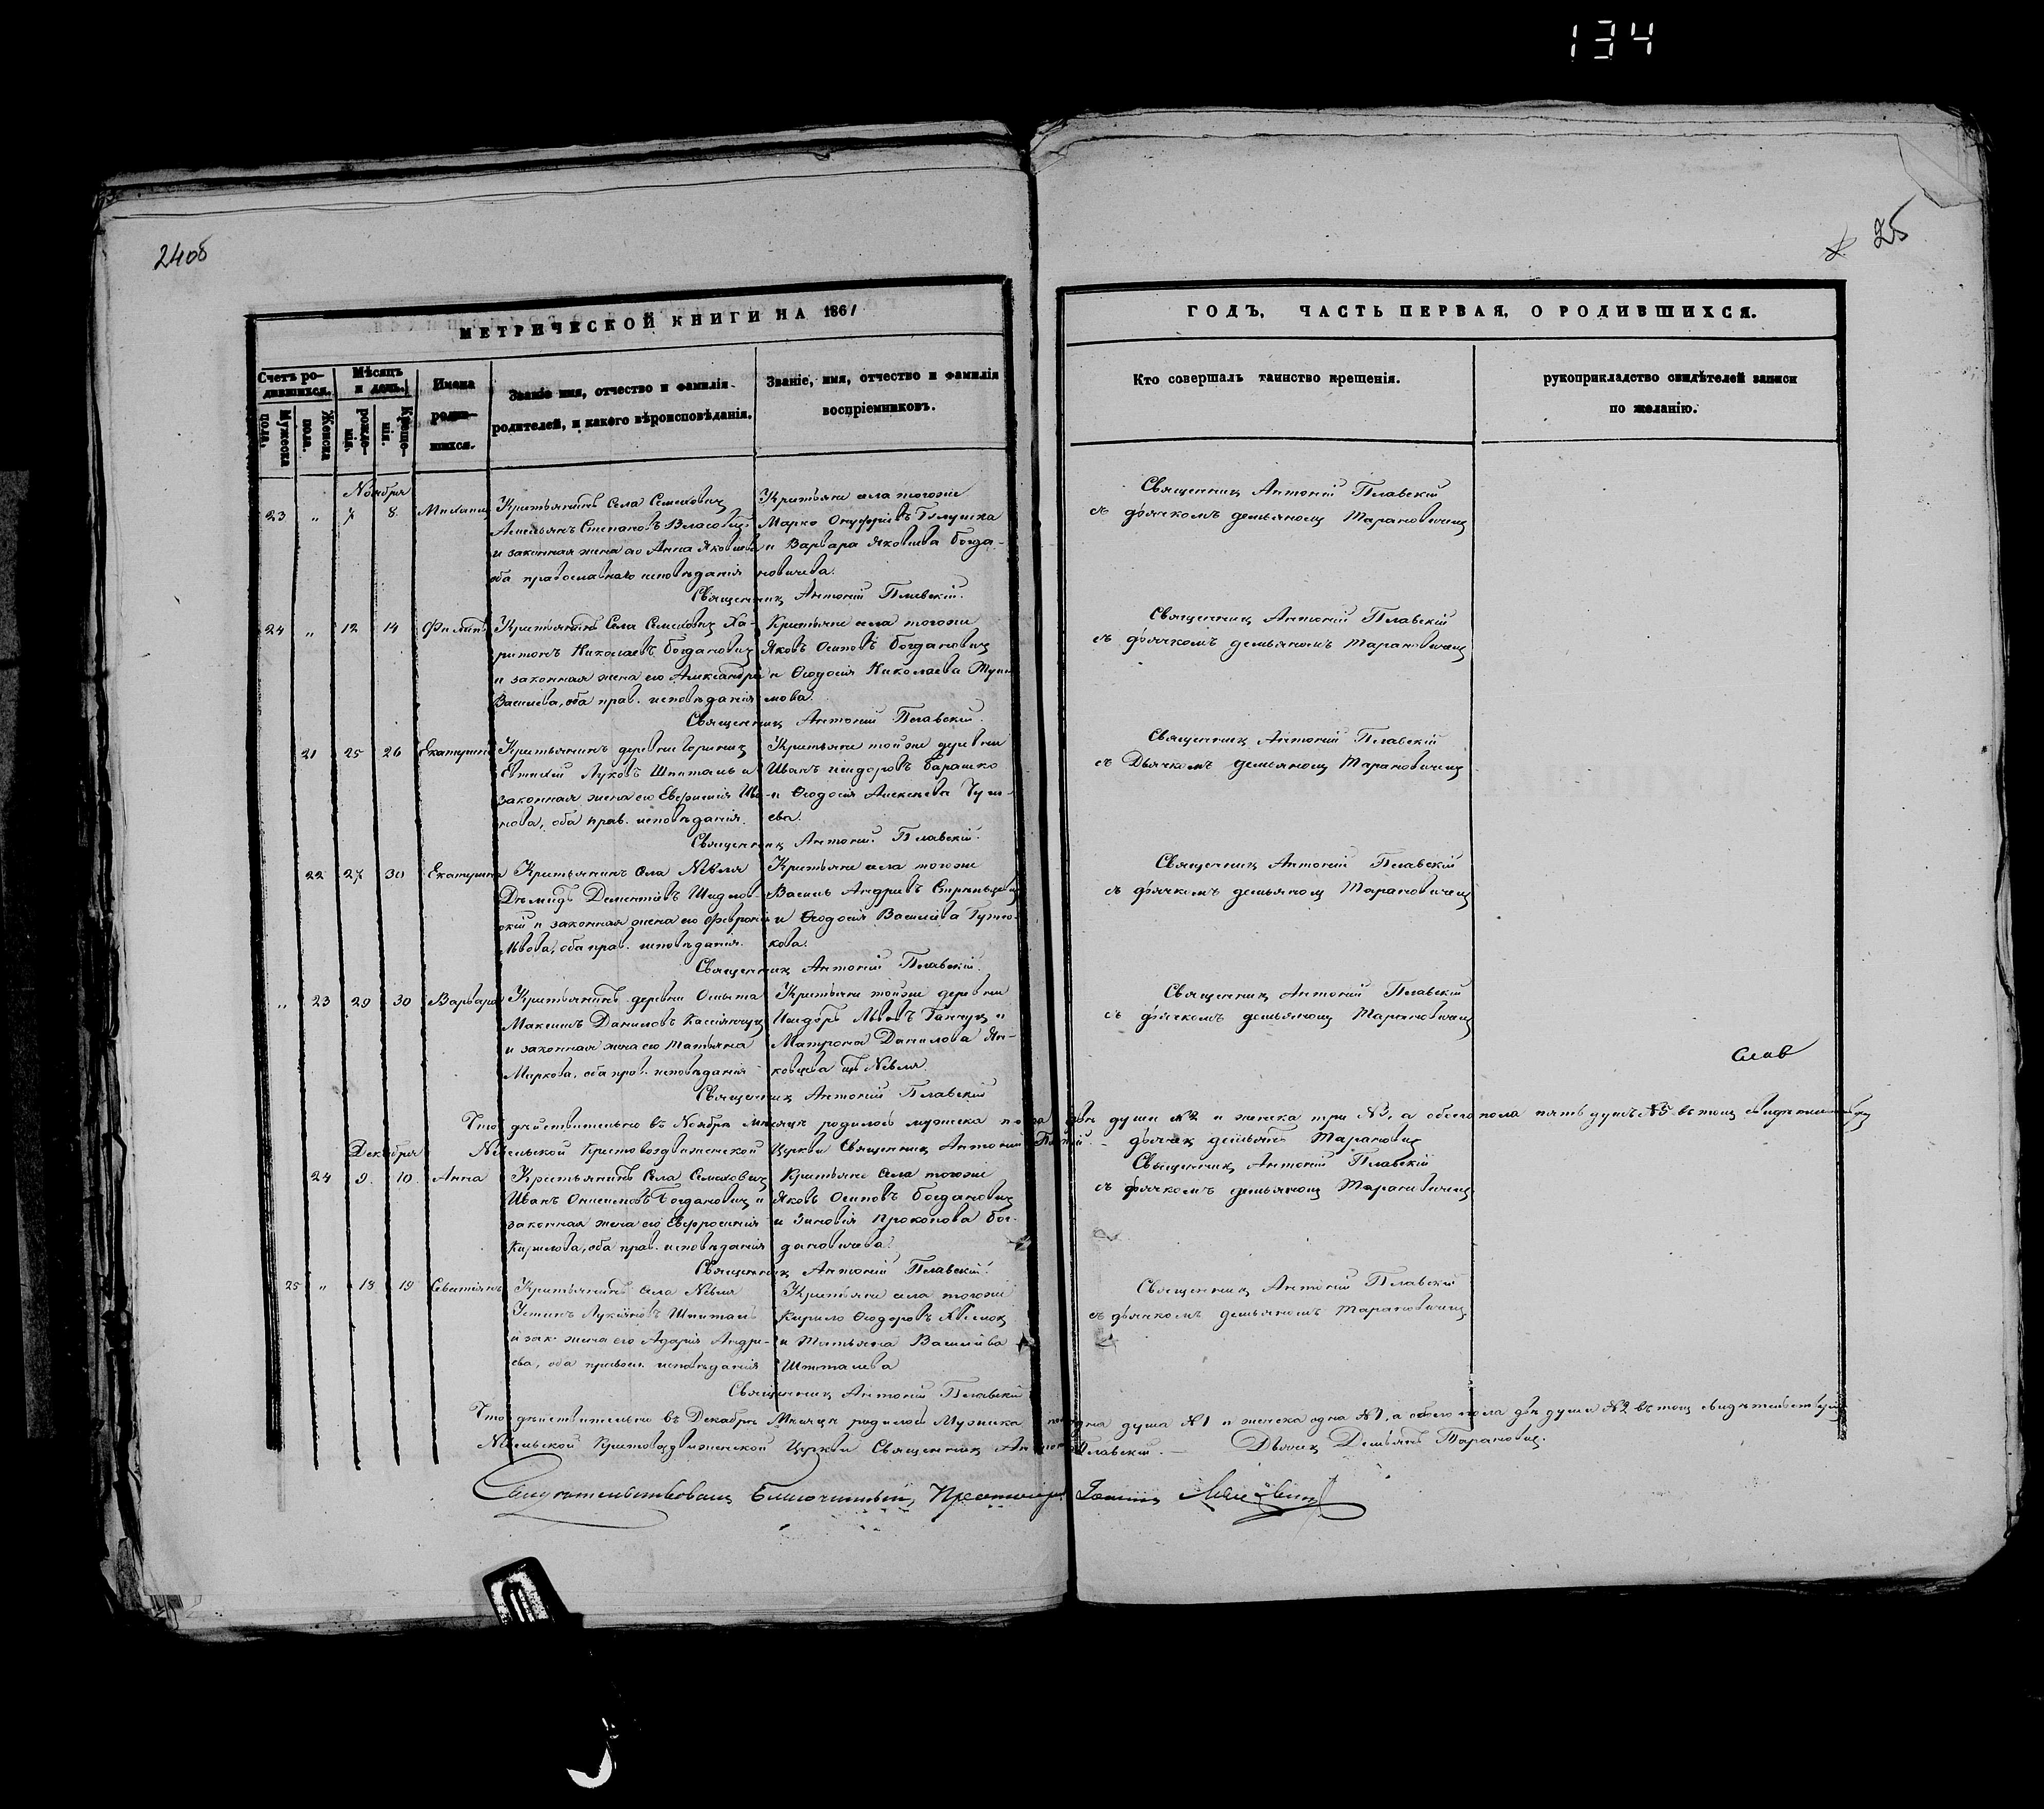 134
24об
25
МЕТРИЧЕСКОЙ КНИГИ НА 1861
ГОДЪ, ЧАСТЬ ПЕРВАЯ, О РОДИВШИХСЯ.
Счетъ родившихся.
Мужеска пола.
Женска пола.
Мѣсяцъ и день.
рожденія.
Крещенія.
Имена родившихся.
Званіе имя, отчество и фамилія
родителей, и какого вѣроисповѣданія.
Званіе, имя, отчество и фамилія
воспріемниковъ.
Кто совершалъ таинство крещенія.
рукоприкладство свидѣтелей записи
по желанію.
Ноября
23 " 7 8 Михаилъ
Крестьянинъ Села Семиховичъ
Степановъ
и законная жена его Анна Яковлева
оба православнаго исповѣданія
Крестьяне села тогоже
Марко
и Варвара Яковлева Богда-
новичева.
Священникъ Антоній Плавскій.
Священникъ Антоній Плавскій
съ дьячкомъ демьяномъ Тарановичемъ
24 " 12 14 Филипъ
Крестьянинъ Села Семиховичъ Ха-
ритонъ Николаевъ Богдановичъ
и законная жена его Александра
Васильева, оба прав. исповѣданія
Крестьяне села тогоже
Яковъ Осиповъ Богдановичъ
и Ѳеодосія Николаева
мова.
Священникъ Антоній Плавскій.
Священникъ Антоній Плавскій
съ дьячкомъ демьяномъ Тарановичемъ
21 25 26 Екатерина
Крестьянинъ деревни
Луковъ Шпиталь и
законная жена его Евфимія Ива-
нова, оба прав. исповѣданія.
Крестьяне тойже деревни
Иванъ Исидоровъ Барашко
и Ѳеодосія Алексѣева
ева.
Священникъ Антоній Плавскій.
Священникъ Антоній Плавскій
съ Дьячкомъ демьяномъ Тарановичемъ
22 27 30 Екатерина
Крестьянинъ Села Невля
Дементіевъ Шидлов-
скій и законная жена его Февронія
Львова, оба прав. исповѣданія.
Крестьяне села тогоже
Василь Андреевъ
и Ѳеодосія Васильева
кова.
Священникъ Антоній Плавскій.
Священникъ Антоній Плавскій
съ дьячкомъ демьяномъ Тарановичемъ
" 23 29 30 Варвара
Крестьянинъ деревни
Максимъ Даниловъ
и законная жена его Татьяна
Маркова, оба прав. исповѣданія
Крестьяне тойже деревни
Исидоръ Львовъ и
Матрона Данилова Ян-
ковцева Невля.
Священникъ Антоній Плавскій
Священникъ Антоній Плавскій
съ дьячкомъ демьяномъ Тарановичемъ
Слав
Что дѣйствительно въ Ноябрѣ Мѣсяцѣ родилось мужеска пола двѣ души №2 и женска три №3, а обоего пола пять душъ №5 въ томъ
Невельской Крестовоздвиженской Церкви Священникъ Антоній дьячекъ демьянъ Тарановичъ
Декабря
24 9 10 Анна
Крестьянинъ Села Семиховичъ
Иванъ Богдановичъ и
законная жена его Евфросинія
Кирилова, оба прав. исповѣданія
Крестьяне Села тогоже
Яковъ Осиповъ Богдановичъ
и Зиновія Прокопова Бог-
дановичева.
Священникъ Антоній Плавскій.
Священникъ Антоній Плавскій
съ дьячкомъ демьяномъ Тарановичемъ
25 " 18 19
Крестьянинъ села Невля
Устинъ Лукіяновъ Шпиталь
и зак. жена его Андре-
ева, оба правосл. исповѣданія
Крестьяне села тогоже
Кирило Ѳеодоровъ
и Татьяна Васильева
Шпиталева
Священникъ Антоній Плавскій
Священникъ Антоній Плавскій
съ дьячкомъ демьяномъ Тарановичемъ
Что дѣйствительно въ Декабрѣ Мѣсяцѣ родилось Мужеска одна душа №1 и женска одна №1, а обоего пола двѣ души №2 въ томъ
Невельской Крестовоздвиженской Церкви Священникъ Плавскій. — Дьячекъ Демьянъ Тарановичъ.
Благочинный, Протоіерей Іоаннъ